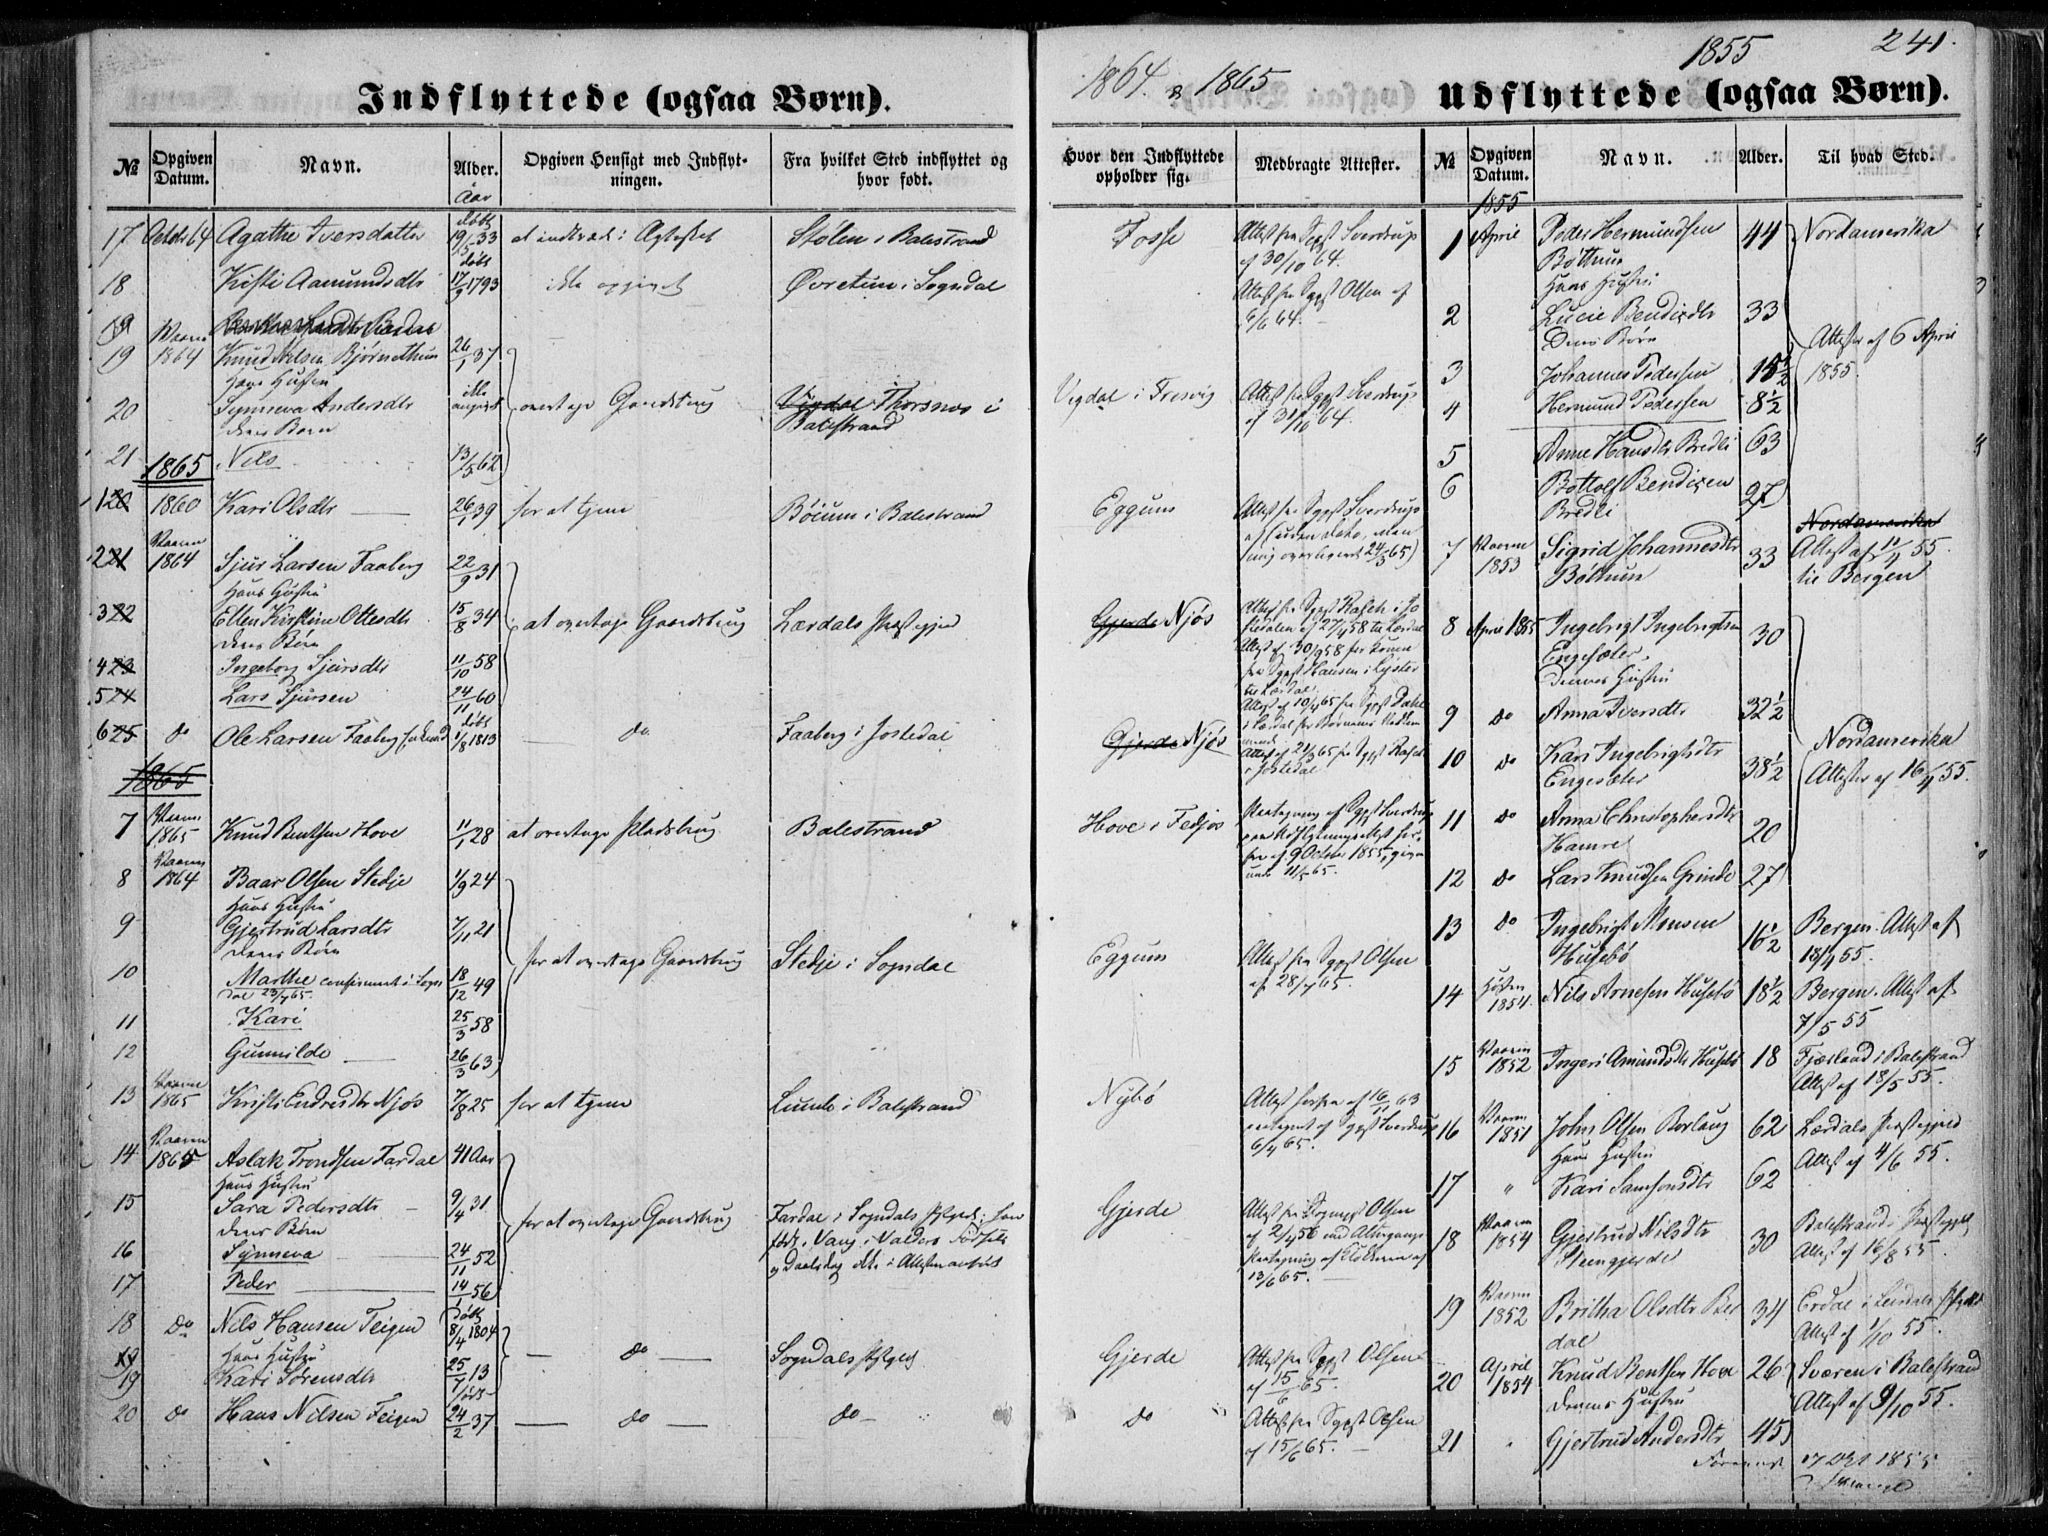 Indflyttede (ogsaa Børn).
№
Opgiven Datum.
Navn.
Alder.
Opgiven Hensigt med Indflyt-
ningen.
Fra hvilket Sted indflyttet og
hvor født.
Aar
17 Octbr 64 Agathe Iversdatter født 19/5 33 at indtræde i Ægtestat Stølen i Balestrand
18 Kristi Aamundsdtr født 17/9 1793 ikke opgivet Øvretun i Sogndal
19
19 Vaaren 1864 Knud Nilsen Bjørnethun 26/1 37
Hans Hustru
20 Synneva Andersdtr ikke opgivet overtage Gaardsbrug Vigdal Thorsnes i
Balestrand
deres Barn
21 Nils 13/5 62
1865
1 20 1860 Kari Olsdtr 26/1 39 for at tjene Bøium i Balestrand
2 21 Vaaren 1864 Sjur Larsen Faaberg 22/9 31
Hans Hustru
3 22 Ellen Kirstine Ottesdtr 15/8 34 at overtage Gaardsbrug Lærdals Præstegjeld
deres Børn
4 23 Ingeborg Sjursdtr 11/10 58
5 24 Lars Sjursen 24/11 60
6 25 do Ole Larsen Faaberg født 1/8 1813 do Faaberg i Jostedal
1865
7 Vaaren 1865 Knud Bentsen Hove 11/1 28 at overtage Pladsbrug Balestrand
8 Vaaren 1864 Baar Olsen Stedje 1/9 24
Hans Hustru
9 Gjertrud Larsdtr 7/11 21
deres Børn
for at overtage Gaardsbrug Stedje i Sogndal
10 Marthe confirmeret i Sogn
dal 23/4 65. 18/12 49
11 Kari 25/3 58
12 Gunnilde 26/3 63
13 Vaaren 1865 Kristi Endresdtr Njøs 7/8 25 for at tjene Lunde i Balestrand
14 Vaaren 1865 Aslak Trondsen Fardal 41 Aar
Hans Hustru
15 Sara Pedersdtr 9/4 31 for at overtage Gaardsbrug Fardal i Sogndals Pstgjd; han
født i Vang i Valders Fødsels
og Daabsdag ikke i Attesten anført
deres Børn
16 Synneva 24/11 52
17 Peder 14/1 56
18 do Nils Hansen Teigen født 8/4 1804
Hans Hustru
do Sogndals Pstgjd
19
19 Kari Sørensdtr 25/7 13
20 do Hans Nilsen Teigen født 24/2 37 do do
1864 & 1865
1855
241.
Udflyttede (ogsaa Børn).
Hvor den Indflyttede
opholder sig.
Medbragte Attester.
№
Opgiven
Datum.
Navn.
Alder.
Til hvad Sted.
Fosse
Attest fra Sgpst Sverdrup
af 30/10 64.
Attest fra Sgpst Olsen af
6/6 64.
Vigdal i Fresvig
Attest fra Sgpst Sverdrup
af 31/10 64.
Eggum
Attest fra Sgpst Sverdrup
af (uden dato, men
mig overleveret 24/3 65)
Gjerde Njøs
Gjerde Njøs
Hove i Fedjos
Paategning af Sgpst Sverdrup
paa Udflytningsattest her-
fra af 9 October 1855, given
under 11/5 65.
Eggum
Attest fra Sgpst Olsen
af 28/4 65.
Nybø
Attest herfra af 16/11 63
paategnet af Sgpst Sverdrup
6/4 65.
Gjerde
Attest fra Sognepst Olsen
af 2/4 56 med Altergangs
Paategning af
13/6 65.
Gjerde
Attest fra Sgpst Olsen
af 15/6 65.
do
Attest fra Sgpst Olsen
af 15/6 65.
1855
1 April Peder Hermundsen
Bøttun 44 Nordamerika
Hans Hustru
2 Lucie Bendixdtr 33
Deres Børn
Attester af 6 April
1855.
3 Johannes Pedersen 15 1/2
4 Hermund Pedersen 8 1/2
5 Anne Hansdtr Bredli 63
6 Bottolf Bendixen
Bredli 27
Nordamerika
7 Vaaren 1853 Sigrid Johannesdtr
Bøttun 33 Attest af 11/4 55.
til Bergen
8 April 1855 Ingebrigt Ingebrigtsen
Engesæter 30
Dennes Hustru
9 do Anna Iversdtr 32 1/2
Nordamerika
Attester af 16/4 55.
10 do Kari Ingebrigtsdtr
Engesæter 38 1/2
11 do Anna Christophersdtr
Hamre 20
12 do Lars Knudsen Grinde 27
13 do Ingebrigt Monsen
Husebø 16 1/2 Bergen. Attest af
18/4 55.
14 Høsten 1854. Nils Arnesen Husebø 18 1/2 Bergen. Attest af
7/5 55
15 Vaaren 1852 Ingeri Amundsdtr Husebø 18 Fjærland i Balestrand
Attest af 18/5 55.
16 Vaaren 1851 John Olsen Borlaug 62 Lærdals Præstegjeld
Attest af 4/6 55.
Hans Hustru
17 " Kari Samsonsdtr 62
18 Vaaren 1854 Gjertrud Nilsdtr
Steengjerde 30 Balestrands Præstegjeld
Attest af 16/8 55.
19 Vaaren 1852 Britha Olsdtr Bet
dal 34 Erdal i Lærdals Pstgjeld
Attest af 1/10 55.
20 April 1854 Knud Bentsen Hove 26 Sværen i Balestrand
Attest af 9/10 55.
Dennes Hustru
21 " Gjertrud Andersdtr 45
17 Oct 1855